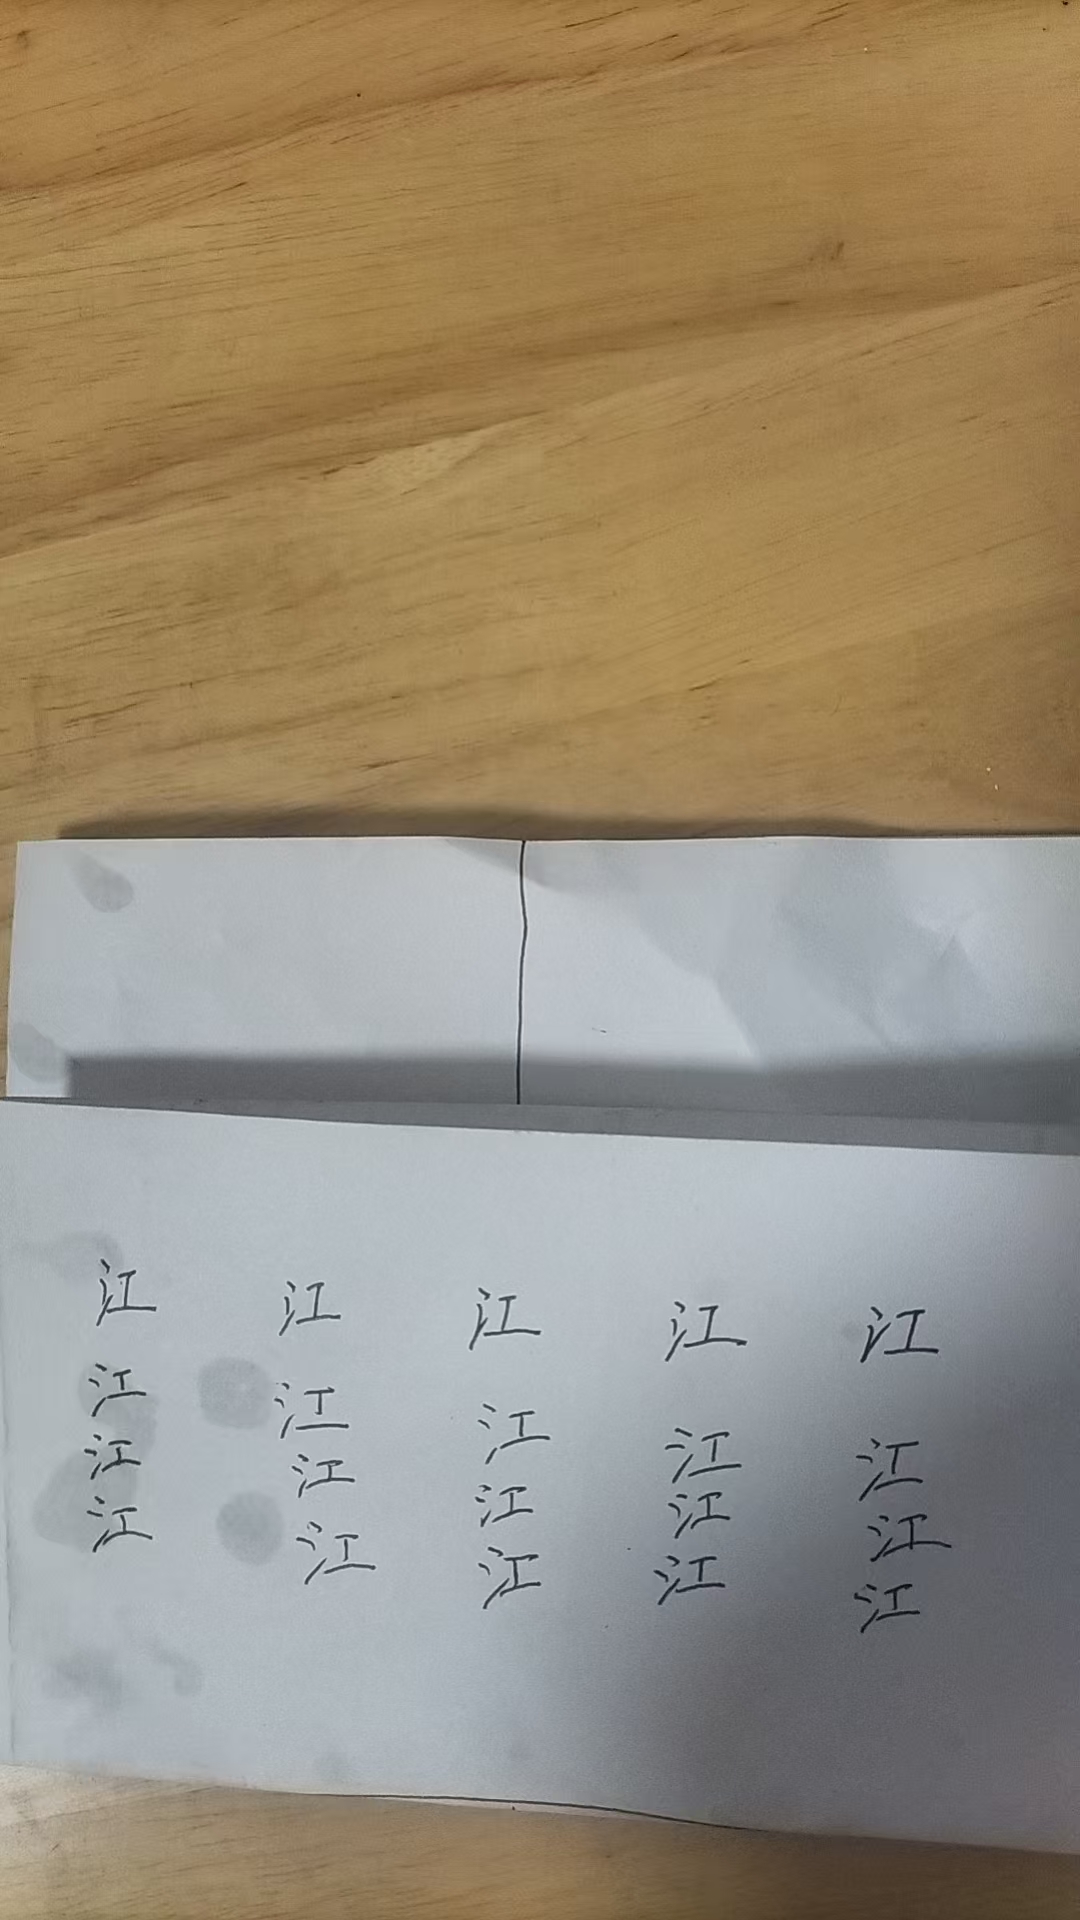 江 江 江 江 江
江 江 江 江 江
江 江 江 江 江
江 江 江 江 江